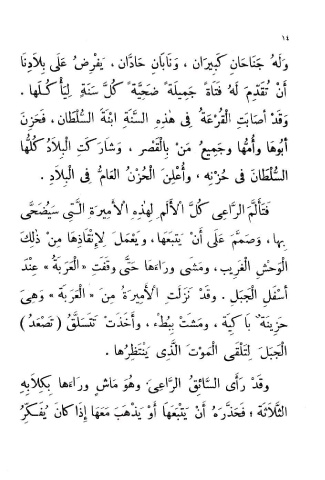 ١٤
وَلَهُ جَنَاحَانِ كَبِيرَانِ ، وَنَابَانِ حَادَّانِ ، يَفْرِضُ عَلَى بِلَادِنَا
أَنْ تُقَدِّمَ لَهُ فَتَاةً جَمِيلَةً ضَحِيَّةً كُلَّ سَنَةٍ لِيَأْكُلَهَا .
وَقَدْ أَصَابَتِ الْقُرْعَةُ فِى هٰذِهِ السَّنَةِ ابْنَةَ السُّلْطَانِ ، فَحَزِنَ
أَبُوهَا وَأُمُّهَا وَجَمِيعُ مَنْ بِالْقَصْرِ ، وَشَارَكَتِ الْبِلَادُ كُلُّهَا
السُّلْطَانَ فِى حُزْنِهِ ، وَأُعْلِنَ الْحُزْنُ الْعَامُّ فِى الْبِلَادِ .
فَتَأَلَّمَ الرَّاعِى كُلَّ الْأَلَمِ لِهٰذِهِ الْأَمِيرَةِ الَّتِى سَيُضَحَّى
بِهَا ، وَصَمَّمَ عَلَى أَنْ يَتْبَعَهَا ، وَيَعْمَلَ لِإِنْقَاذِهَا مِنْ ذٰلِكَ
الْوَحْشِ الْغَرِيبِ ، وَمَشَى وَرَاءَهَا حَتَّى وَقَفَتِ « الْعَرَبَةُ » عِنْدَ
أَسْفَلِ الْجَبَلِ . وَقَدْ نَزَلَتِ الْأَمِيرَةُ مِنَ « الْعَرَبَةِ » وَهِىَ
حَزِينَةٌ بَاكِيَةٌ ، وَمَشَتْ بِبُطْءٍ ، وَأَخَذَتْ تَتَسَلَّقُ ( تَصْعَدُ )
الْجَبَلَ لِتَلْقَى الْمَوْتَ الَّذِى يَنْتَظِرُهَا .
وَقَدْ رَأَى السَّائِقُ الرَّاعِىَ وَهُوَ مَاشٍ وَرَاءَهَا بِكِلَابِهِ
الثَّلَاثَةِ ؛ فَحَذَّرَهُ أَنْ يَتْبَعَهَا أَوْ يَذْهَبَ مَعَهَا إِذَا كَانَ يُفَكِّرُ